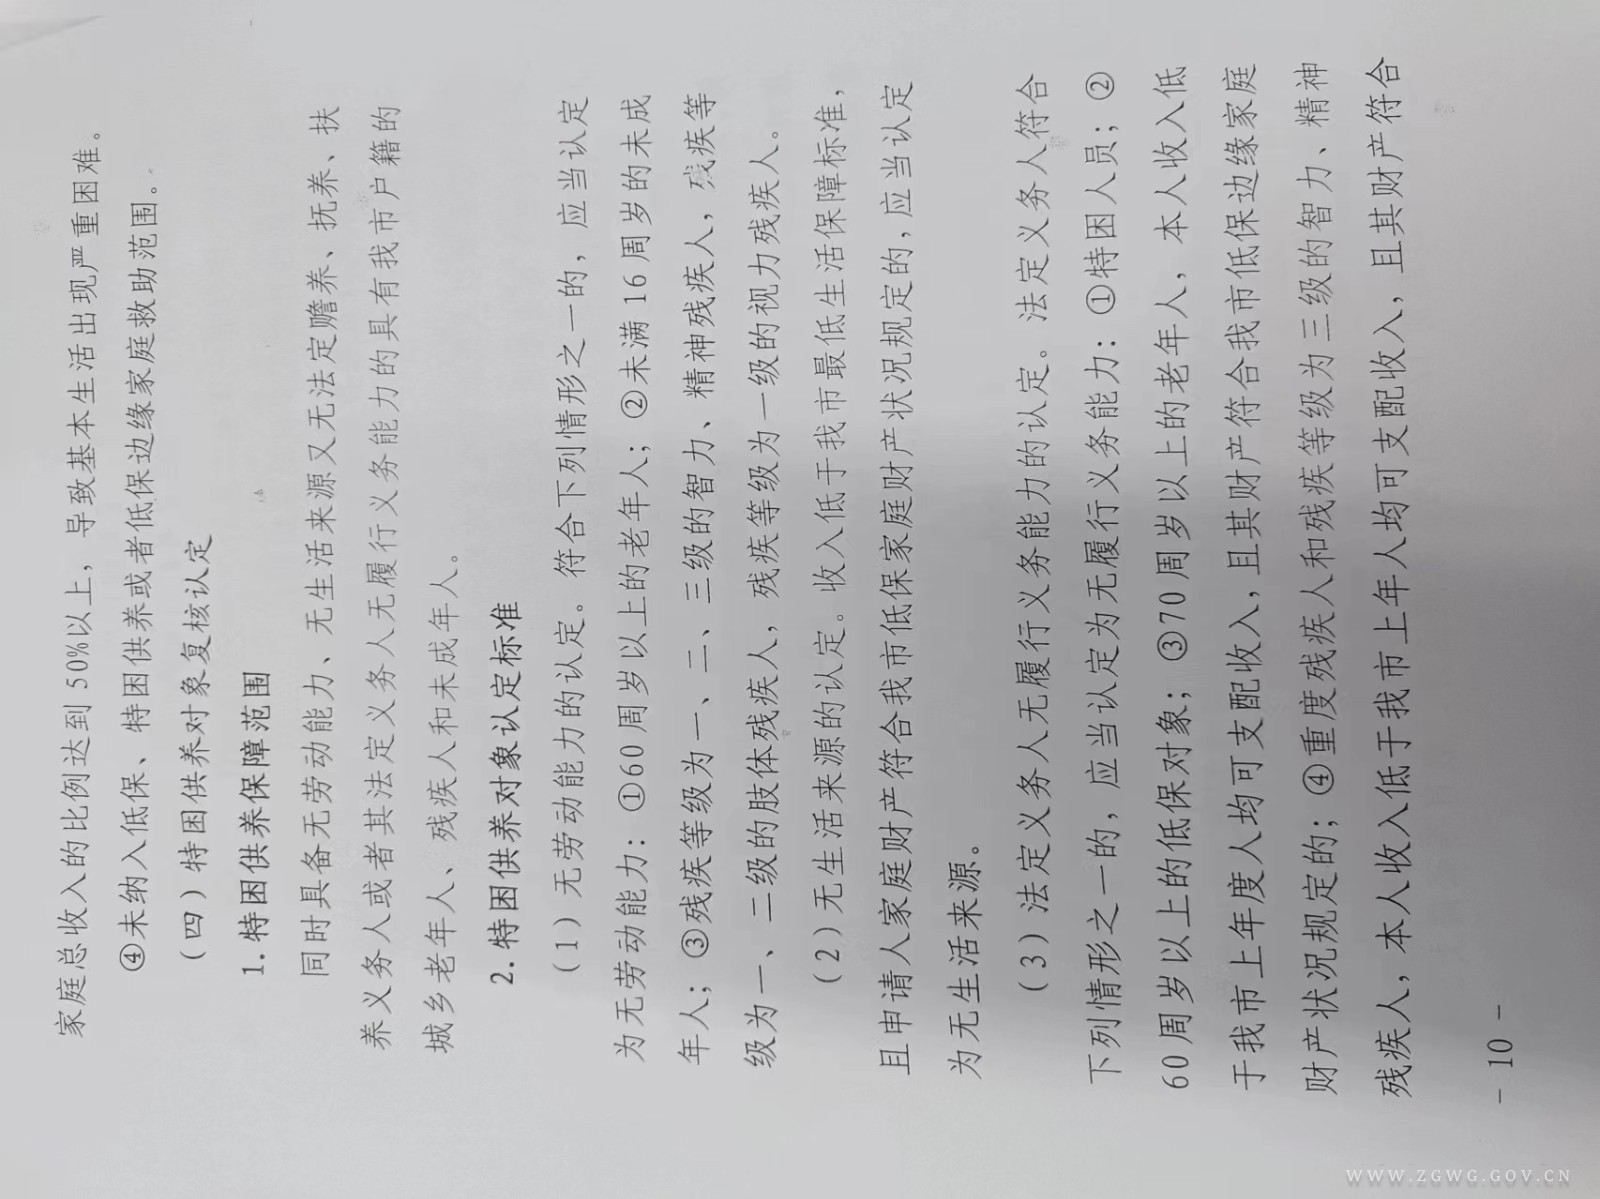 家庭总收入的比例达到50%以上，导致基本生活出现严重困难。
④未纳入低保、特困供养或者低保边缘家庭救助范围。
（四）特困供养对象复核认定
1.特困供养保障范围
同时具备无劳动能力、无生活来源又无法定赡养、抚养、扶
养义务人或者其法定义务人无履行义务能力的具有我市户籍的
城乡老年人、残疾人和未成年人。
2.特困供养对象认定标准
（1）无劳动能力的认定。符合下列情形之一的，应当认定
为无劳动能力：①60周岁以上的老年人；②未满16周岁的未成
年人；③残疾等级为一、二、三级的智力、精神残疾人，残疾等
级为一、二级的肢体残疾人，残疾等级为一级的视力残疾人。
（2）无生活来源的认定。收入低于我市最低生活保障标准，
且申请人家庭财产符合我市低保家庭财产状况规定的，应当认定
为无生活来源。
（3）法定义务人无履行义务能力的认定。法定义务人符合
下列情形之一的，应当认定为无履行义务能力：①特困人员；②
60周岁以上的低保对象；③70周岁以上的老年人，本人收入低
于我市上年度人均可支配收入，且其财产符合我市低保边缘家庭
财产状况规定的；④重度残疾人和残疾等级为三级的智力、精神
残疾人，本人收入低于我市上年人均可支配收入，且其财产符合
－ 10 －
WWW.ZGWG.GOV.CN